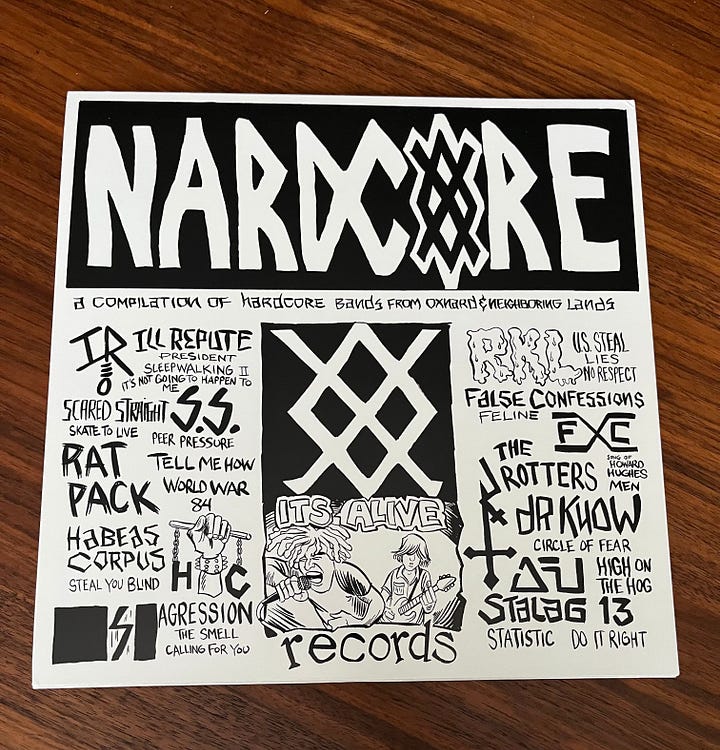 NARDCORE
a COMPILATION OF hARDCORE BaNdS FROM OXNARD & NEIGHBORING LaNdS
IR
ILL REPUTE
PRESIDENT
SLEEPWALKING II
IT'S NOT GOING TO HAPPEN TO
ME
SCARED STRAIGHT
SKATE TO LIVE
S.S.
PEER PRESSURE
RAT
PACK
TELL ME HOW
WORLD WAR
84
HaBEaS
CORPUS
STEAL YOU BLIND
H C
AGRESSION
THE SMELL
CALLING FOR YOU
ITS ALIVE
records
RKL
U.S. STEAL
LIES
NO RESPECT
FalSE CONFESSIONS
FELINE
FXC
SONG OF
HOWARD
HUGHES
MEN
THE
ROTTERS
DR KNOW
CIRCLE OF FEAR
AFU
HIGH ON
THE HOG
STalaG 13
STATISTIC DO IT RIGHT